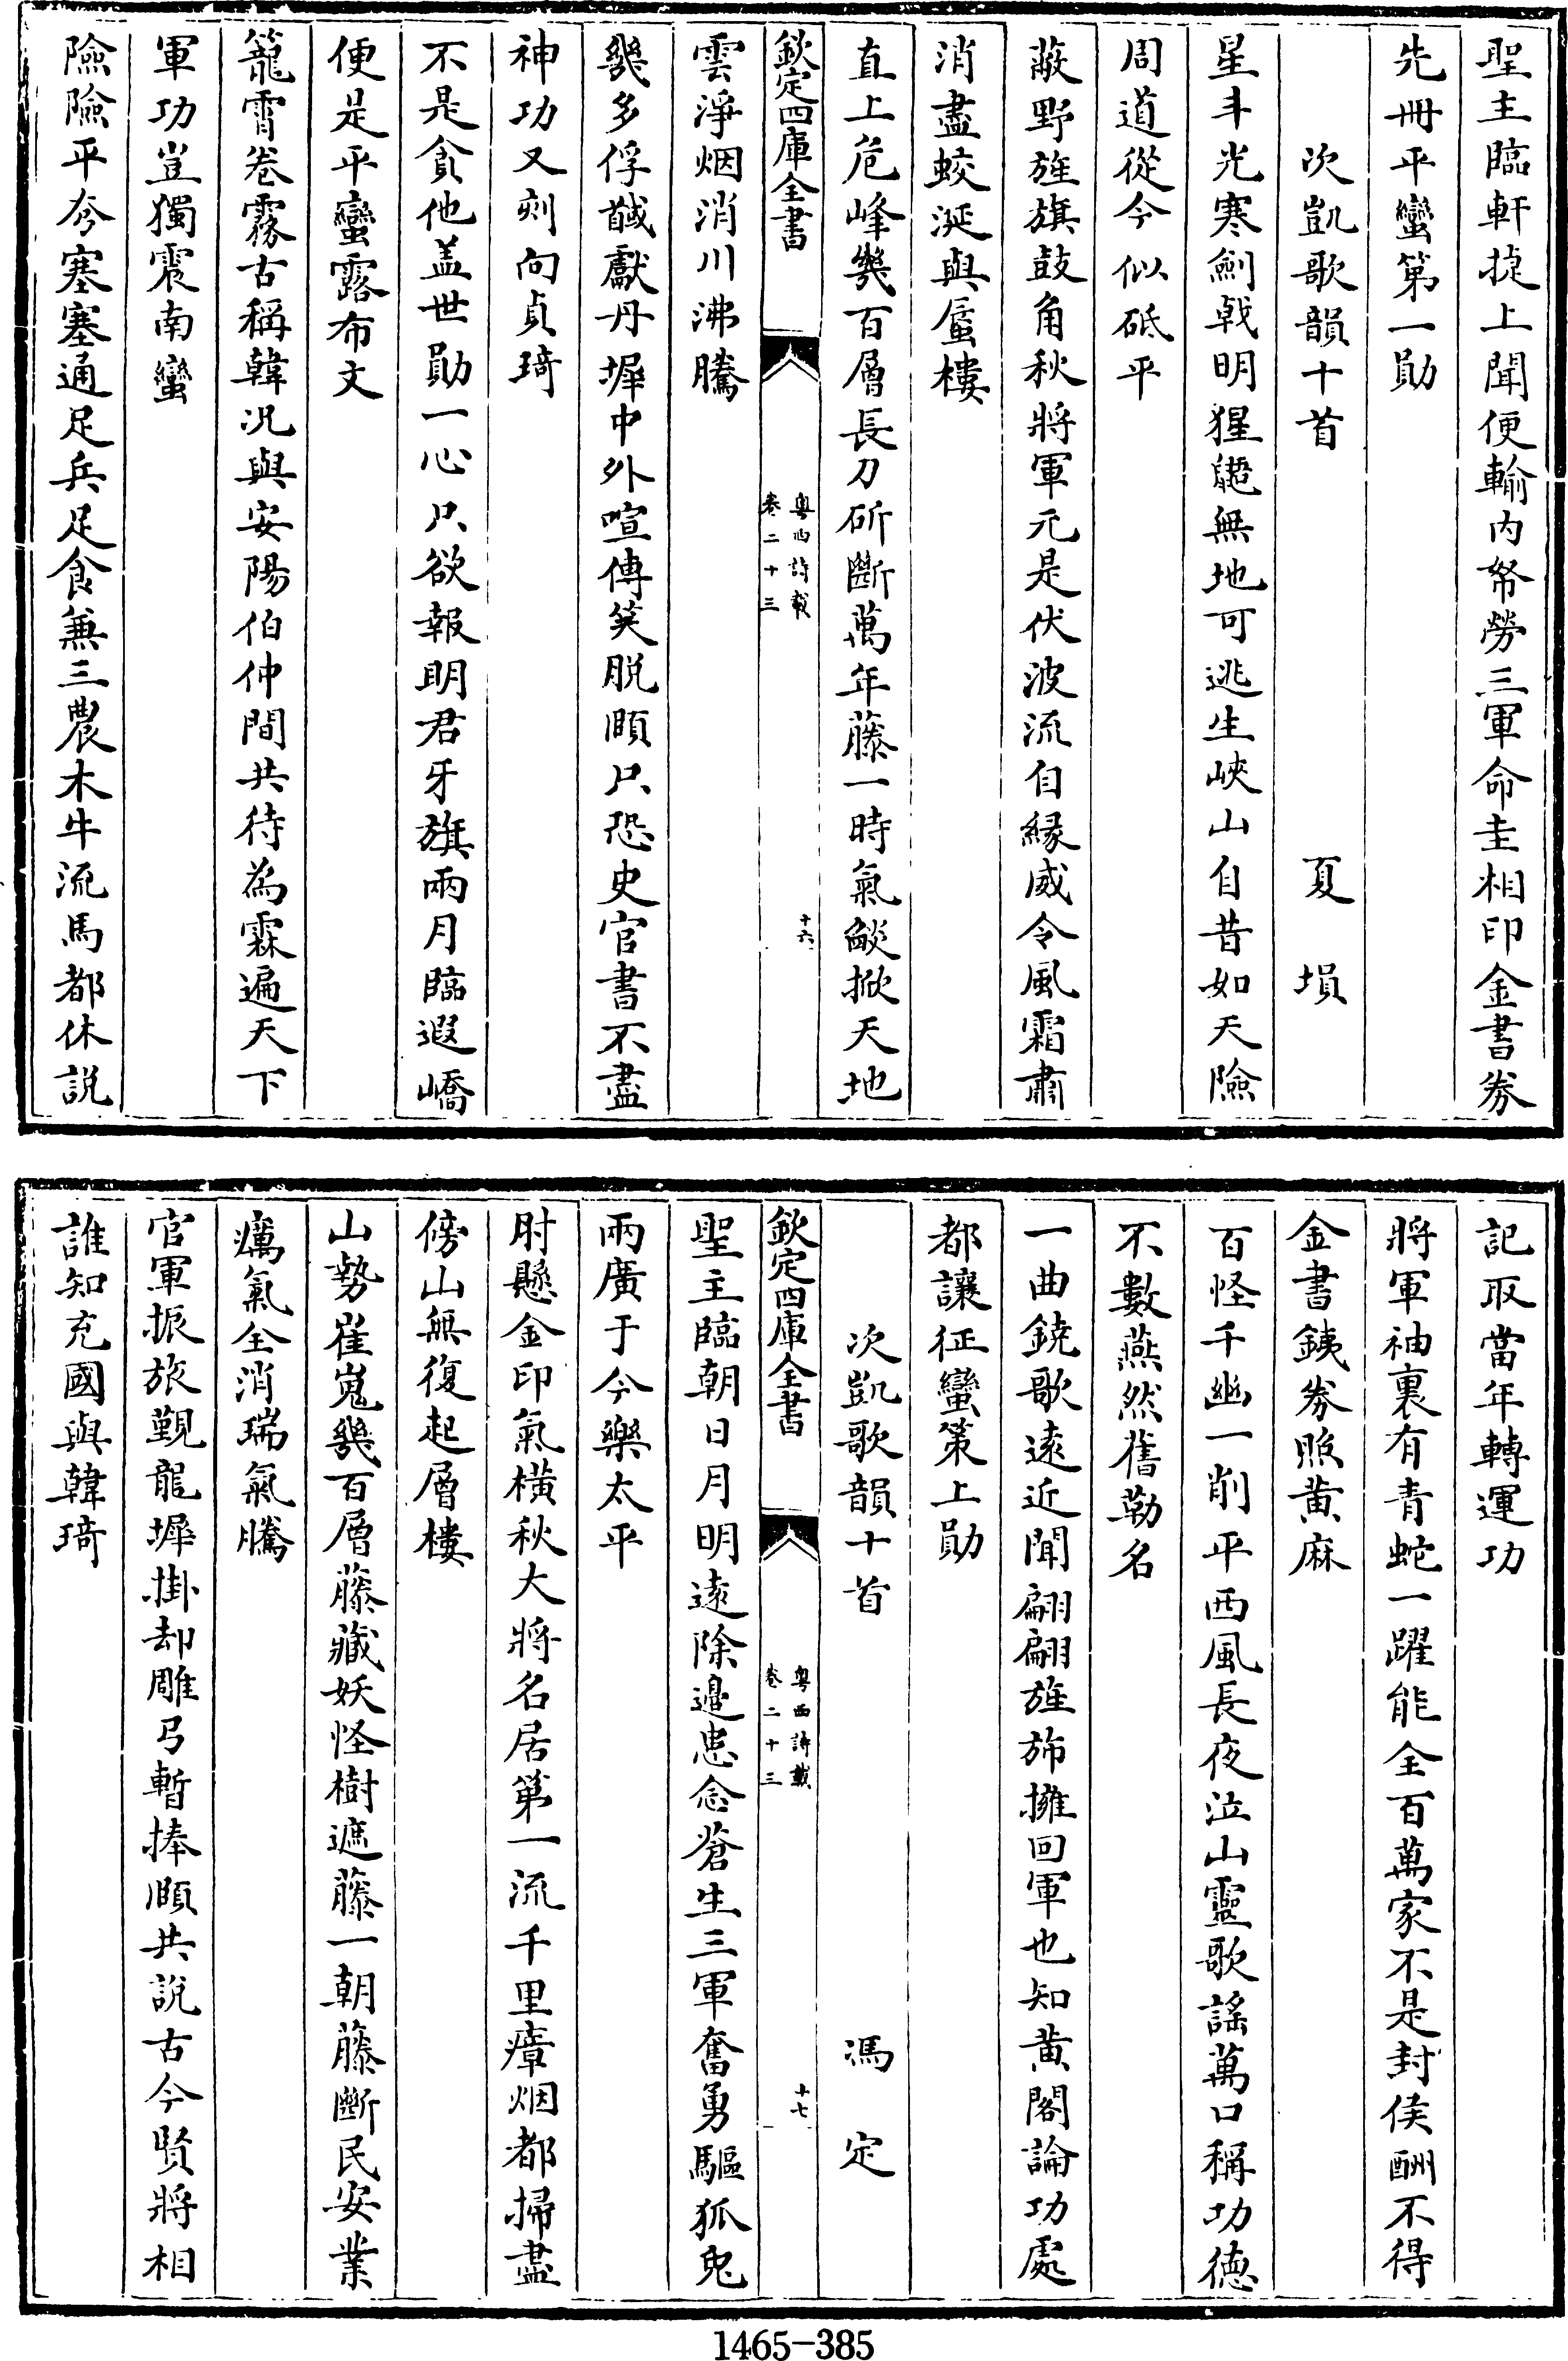 聖主臨軒捷上聞便輸内帑勞三軍命圭相印金書劵
先册平蠻第一勛
次凱歌韻十首　夏塤
星斗光寒劍㦸明猩鼯無地可逃生峽山自昔如天險
周道從今似砥平
蔽野旌旗鼓角秋將軍元是伏波流自縁威令風霜肅
消盡蛟涎與蜃樓
直上危峰幾百層長刀斫斷萬年藤一時氣燄掀天地
欽定四庫全書
粵西詩載
卷二十三
十六
雲淨烟消川沸騰
幾多俘馘獻丹墀中外喧傳笑脱頤只恐史官書不盡
神功又刻向貞琦
不是貪他盖世勛一心只欲報明君牙旗兩月臨遐嶠
便是平蠻露布文
籠霄卷霧古稱韓况與安陽伯仲間共待為霖遍天下
軍功豈獨震南蠻
險險平夸塞塞通足兵足食兼三農木牛流馬都休説
記取當年轉運功
將軍袖裏有青蛇一躍能全百萬家不是封侯酬不得
金書鐵劵照黄麻
百怪千幽一削平西風長夜泣山靈歌謡萬口稱功徳
不數燕然舊勒名
一曲鐃歌逺近聞翩翩旌斾擁回軍也知黄閣論功處
都讓征蠻策上勛
次凱歌韻十首　馮定
欽定四庫全書
粵西詩載
卷二十三
十七
聖主臨朝日月明逺除邉患念蒼生三軍奮勇驅狐兎
兩廣于今樂太平
肘懸金印氣横秋大將名居第一流千里瘴烟都掃盡
傍山無復起層樓
山勢崔嵬幾百層藤藏妖怪樹遮藤一朝藤斷民安業
癘氣全消瑞氣騰
官軍振旅覲龍墀掛却雕弓暫捧頤共説古今賢將相
誰知充國與韓琦
1465-385